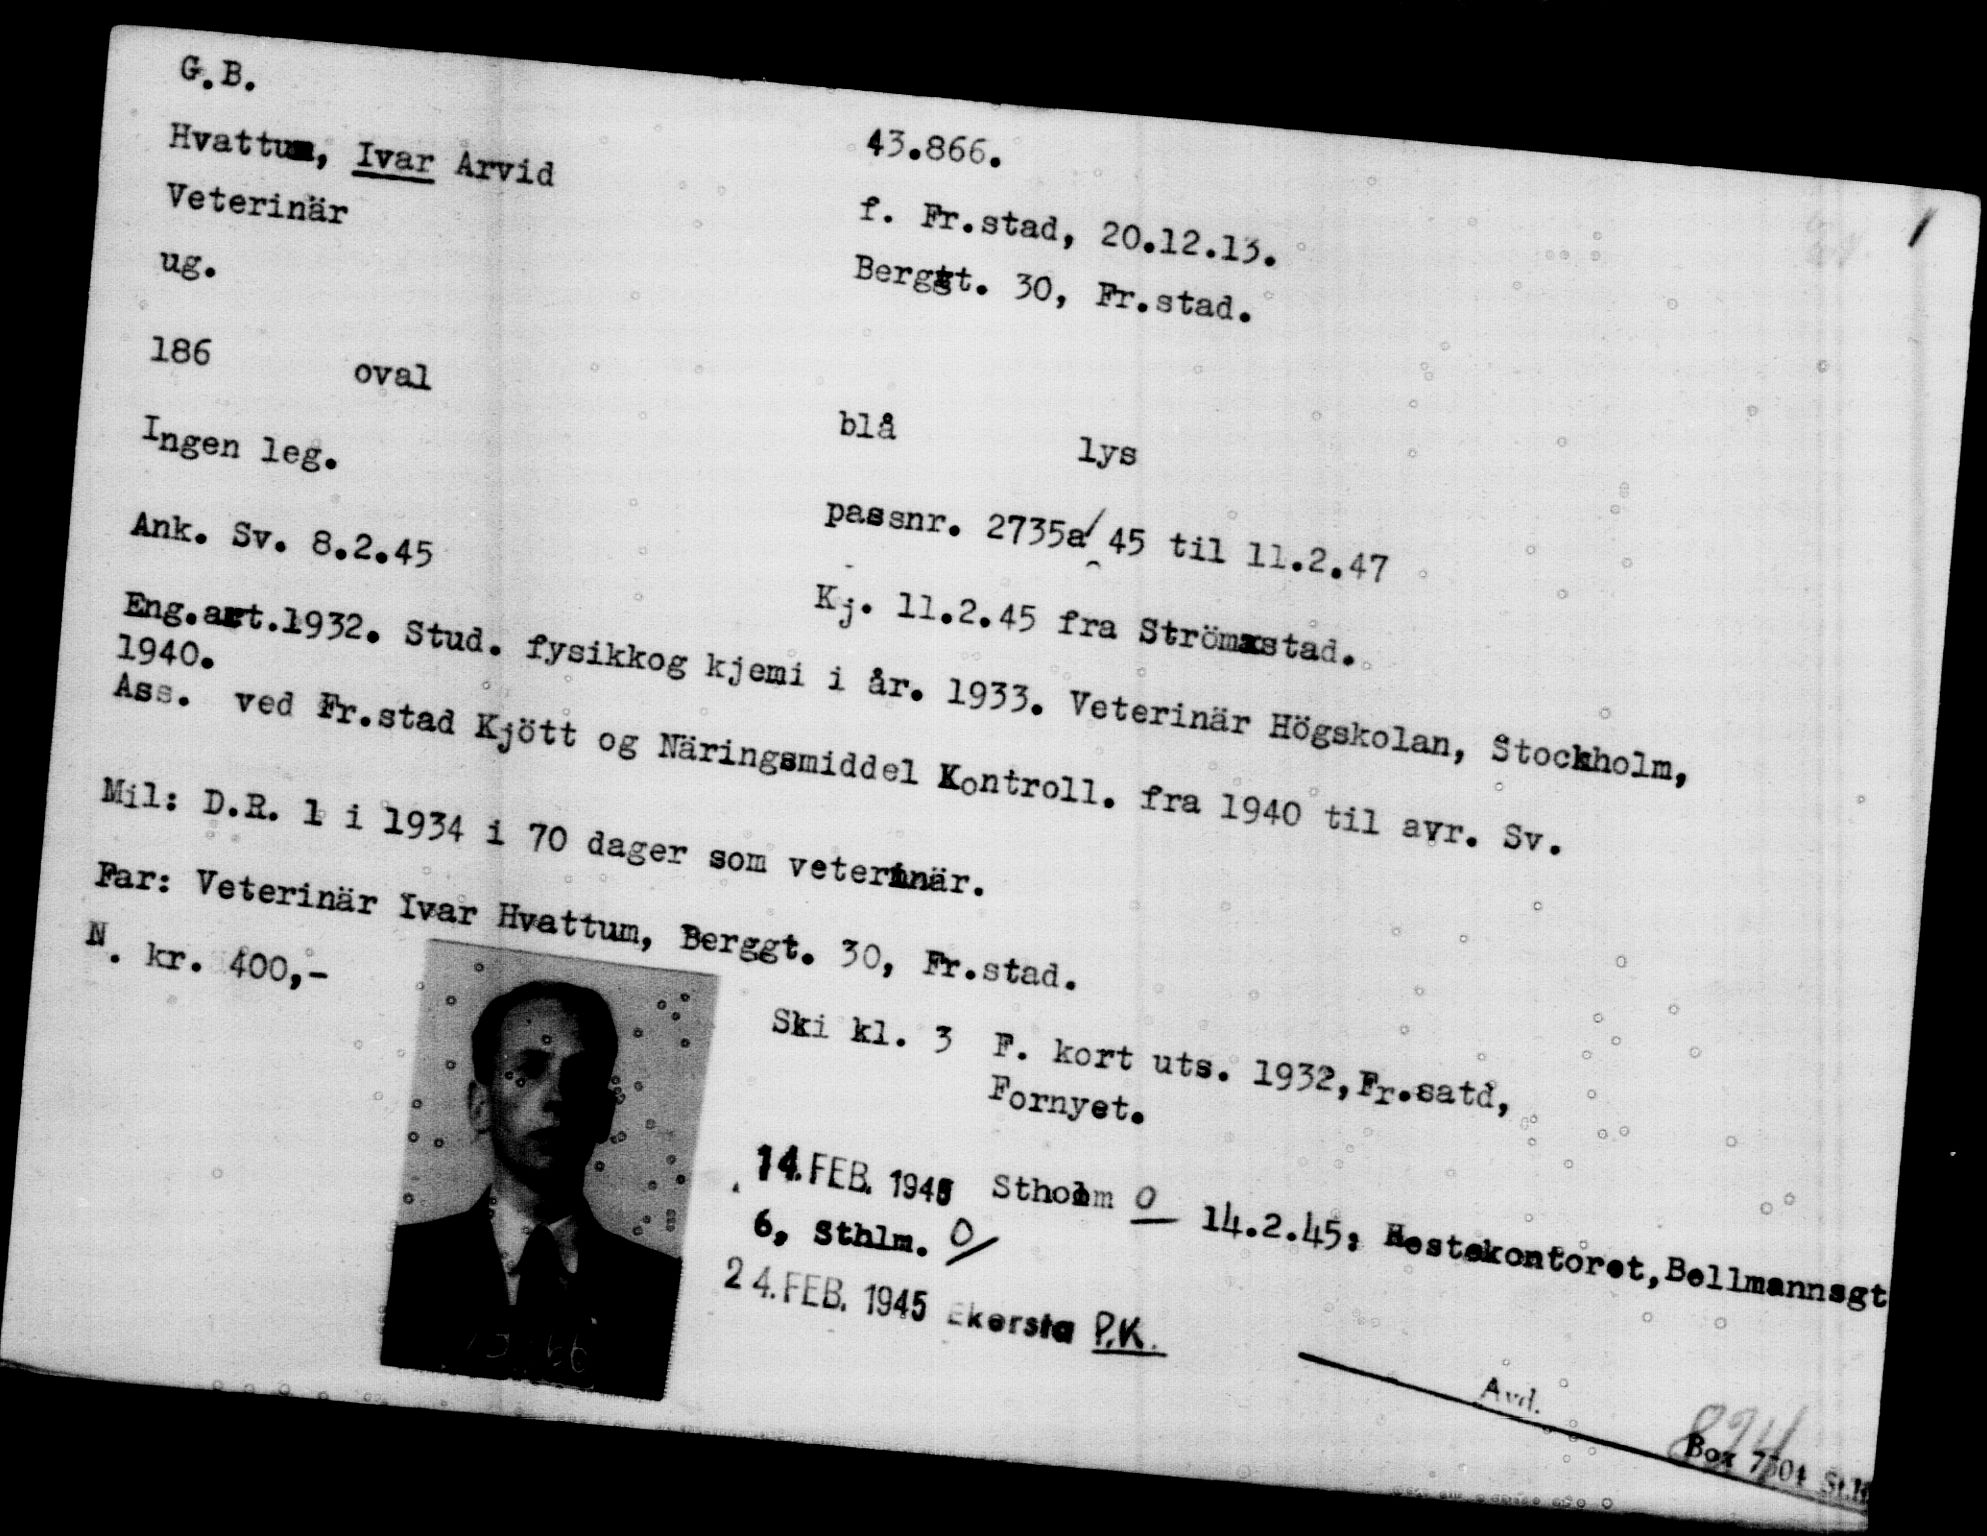 G.B.
Hvattum, Ivar Arvid 43.866.
Veterinär f. Fr.stad, 20.12.13.
ug. Berggt. 30, Fr.stad.
186 oval blå lys
Ingen leg. passnr. 2735a/45 til 11.2.47
Ank. Sv. 8.2.45 Kj. 11.2.45 fra Strömstad.
Eng.art.1932. Stud. fysikkog kjemi i år. 1933. Veterinär Högskolan, Stockholm,
1940.
Ass. ved Fr.stad Kjött og Näringsmiddel Kontroll. fra 1940 til avr. Sv.
Mil: D.R. 1 i 1934 i 70 dager som veterinär.
Far: Veterinär Ivar Hvattum, Berggt. 30, Fr.stad.
N. kr. 400,-
Ski kl. 3 F. kort uts. 1932,Fr.satd,
Fornyet.
14.FEB. 1945 Stholm O 14.2.45: Hestekontoret,Bellmannsgt
6, Sthlm. O/
24.FEB. 1945 Ekersta P.K.
Avd.
824
Box 7501
1